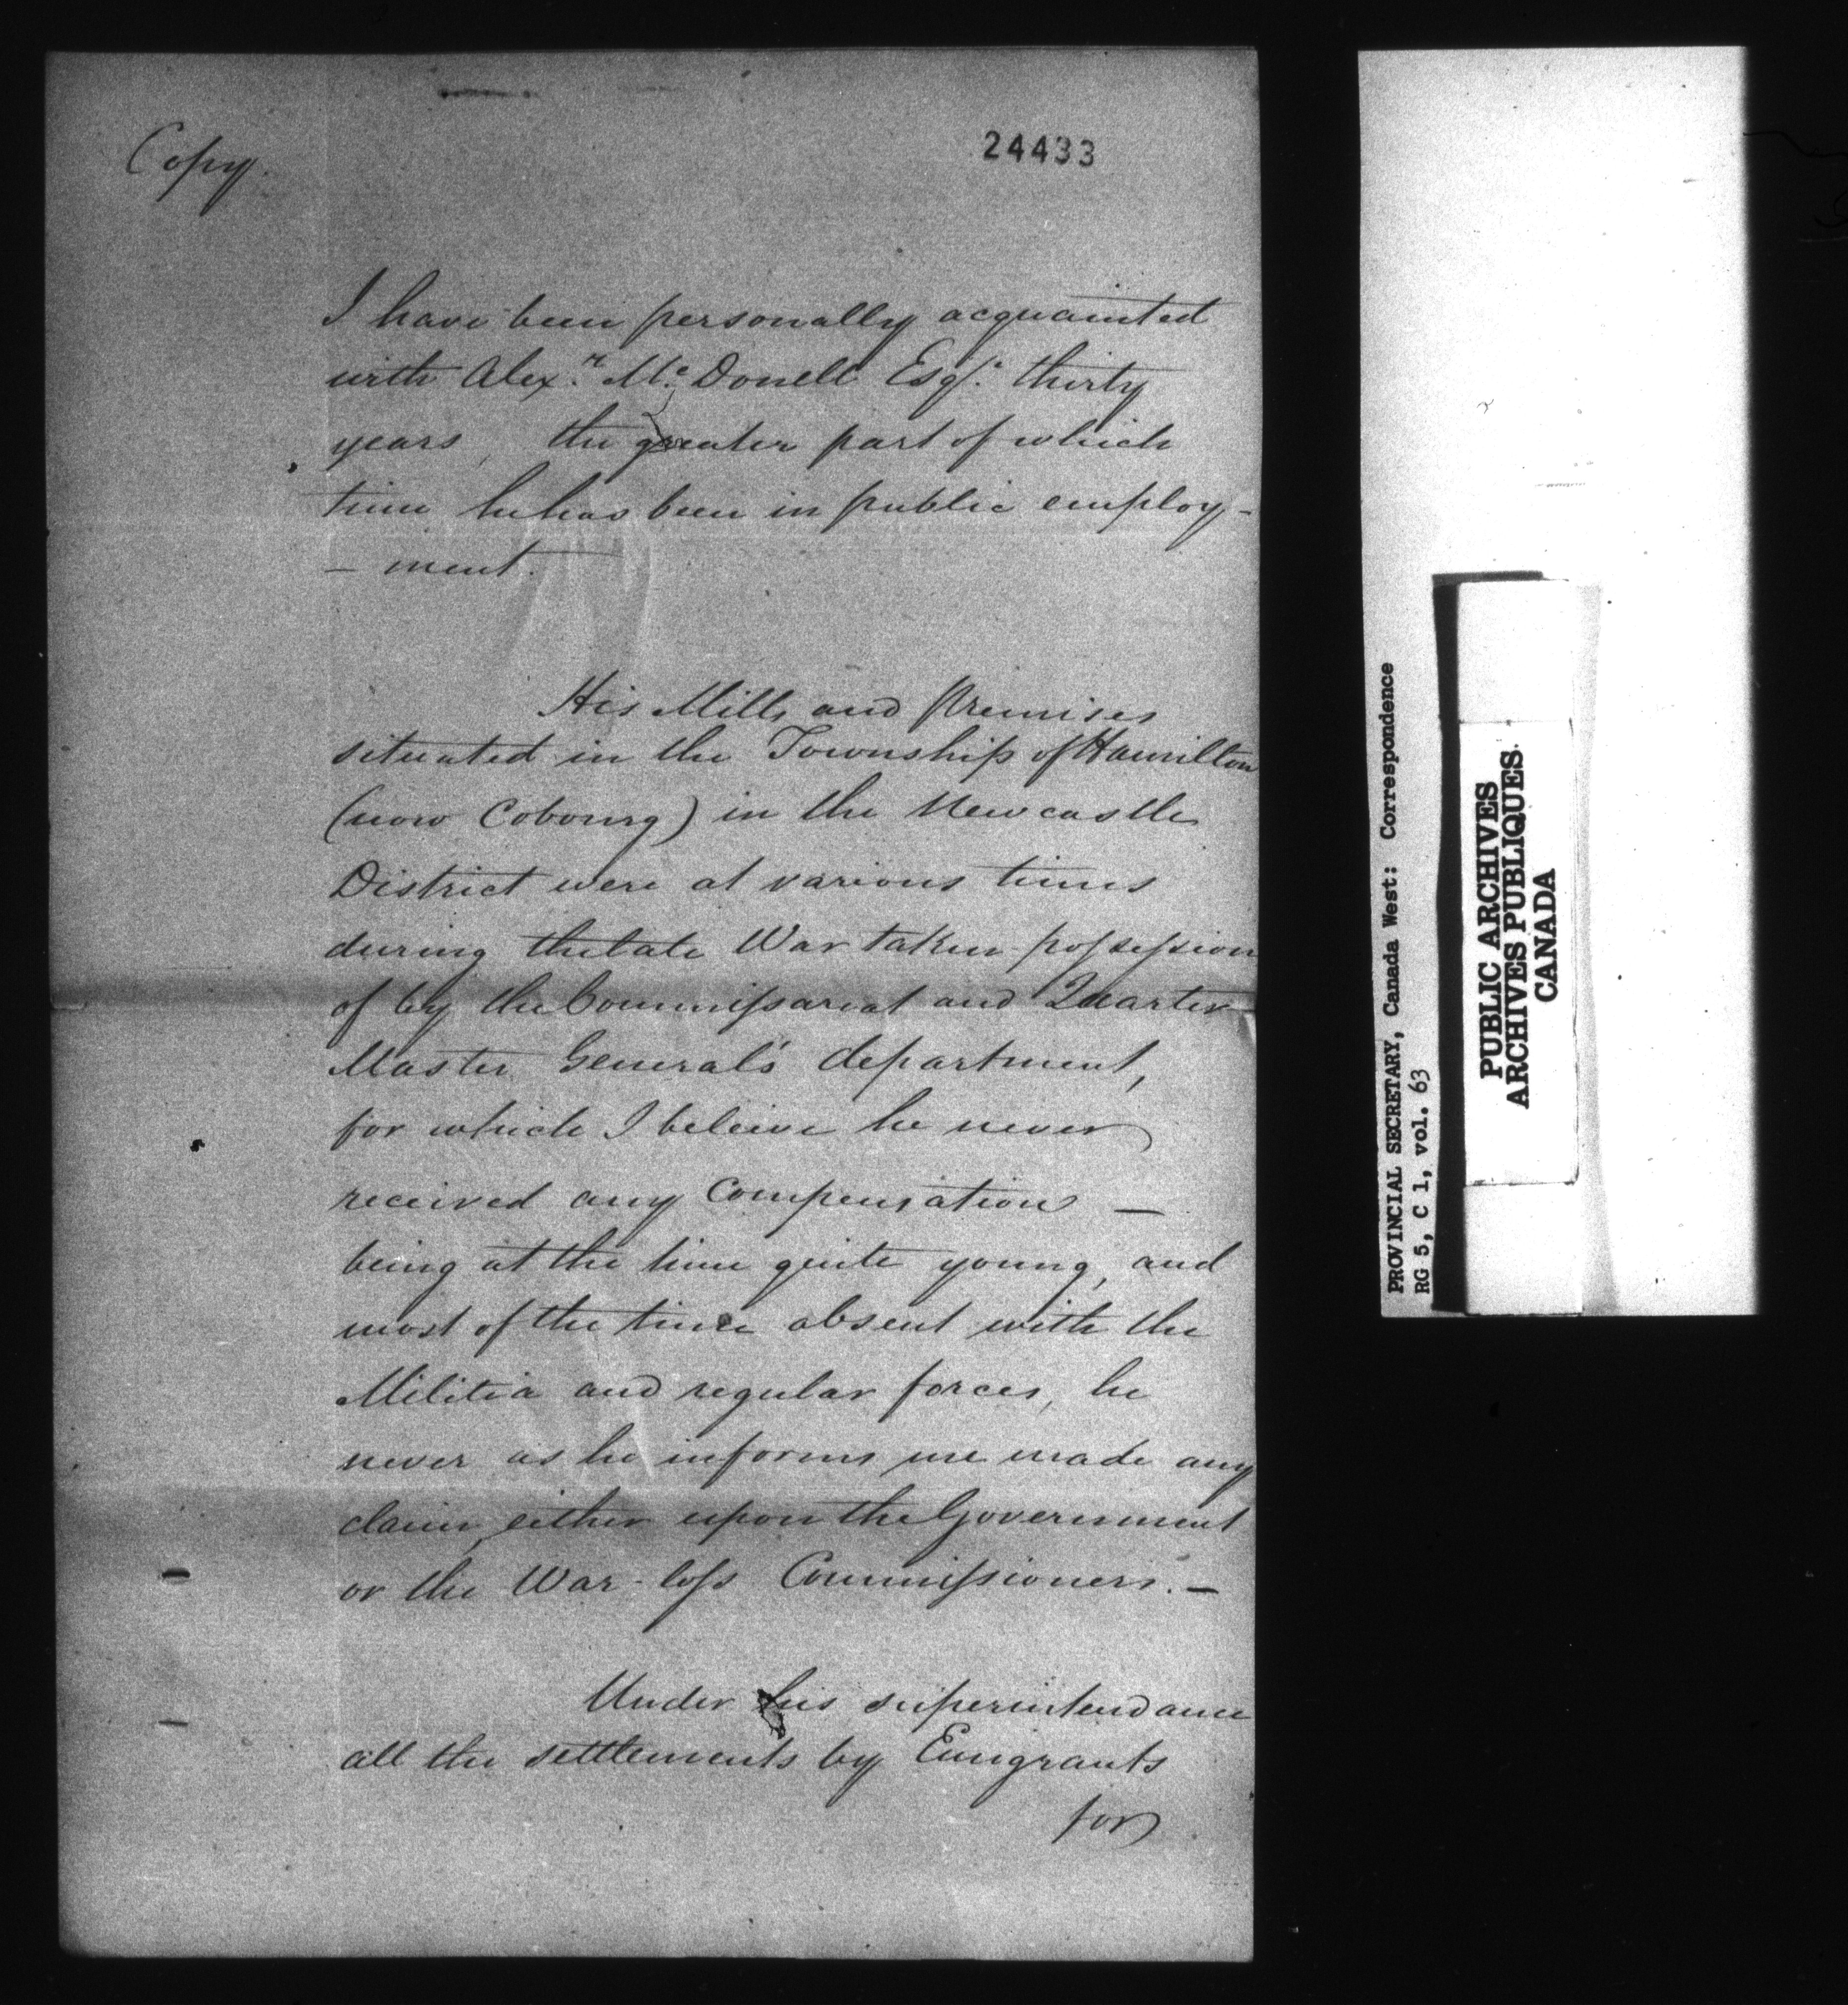 Copy.
24433
I have been personally acquainted
with Alex.r Mc.Donell Esqr. thirty
years, the greater part of which
time he has been in public employ-
- ment.
His Mills and Premises
situated in the Township of Hamilton
(now Cobourg) in the Newcastle
District were at various times
during the late War taken possession
of by the Commissariat and Quarter
Master General's department,
for which I beleive he never
received any Compensation —
being at the time quite young, and
most of the time absent with the
Militia and regular forces, he
never as he informs me made any
claim either upon the Government
or the War-loss Commissioners. —
Under his superintendance
all the settlements by Emigrants
for
PROVINCIAL SECRETARY, Canada West: Correspondence
RG 5, C 1, vol. 63
PUBLIC ARCHIVES
ARCHIVES PUBLIQUES
CANADA